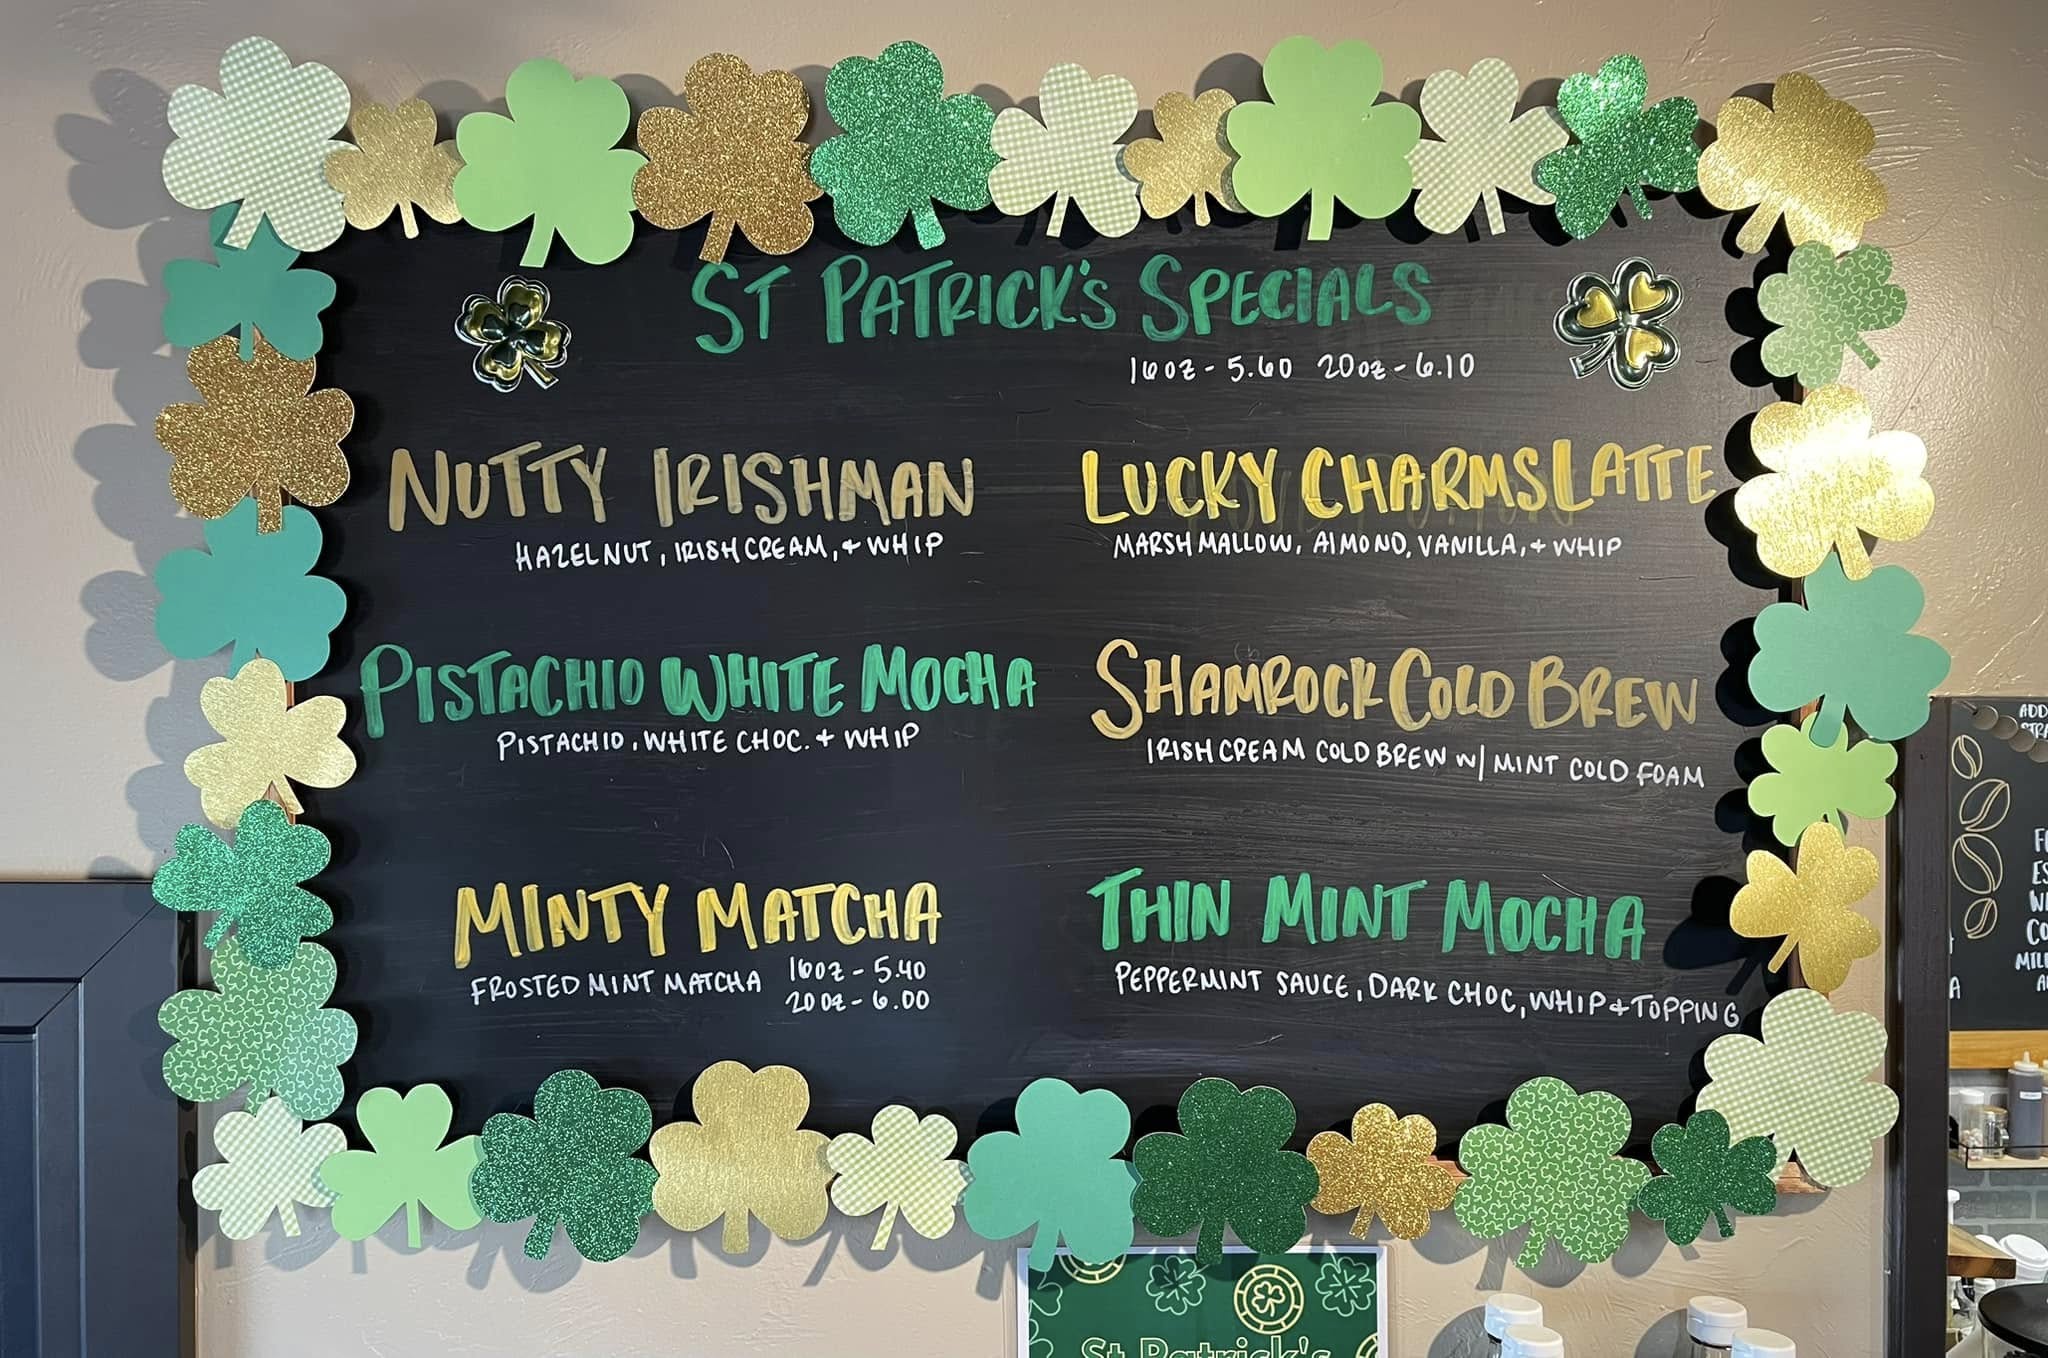 ST PATRICK'S SPECIALS
16oz - 5.60 20oz - 6.10
NUTTY IRISHMAN
HAZELNUT, IRISH CREAM, + WHIP
LUCKY CHARMS LATTE
MARSHMALLOW, ALMOND, VANILLA, + WHIP
PISTACHIO WHITE MOCHA
PISTACHIO, WHITE CHOC. + WHIP
SHAMROCK COLD BREW
IRISH CREAM COLD BREW W/ MINT COLD FOAM
MINTY MATCHA
FROSTED MINT MATCHA 16oz - 5.40
20oz - 6.00
THIN MINT MOCHA
PEPPERMINT SAUCE, DARK CHOC, WHIP + TOPPING
St Patrick's
ADD